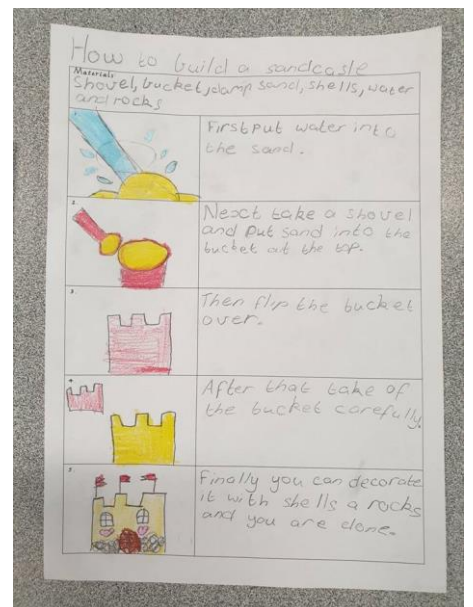 How to build a sandcastle
Materials
Shovel, bucket, damp sand, shells, water
and rocks
First put water into
the sand.
2.
Next take a shovel
and put sand into the
bucket at the top.
3.
Then flip the bucket
over.
4.
After that take of
the bucket carefully.
5.
Finally you can decorate
it with shells a rocks
and you are done.